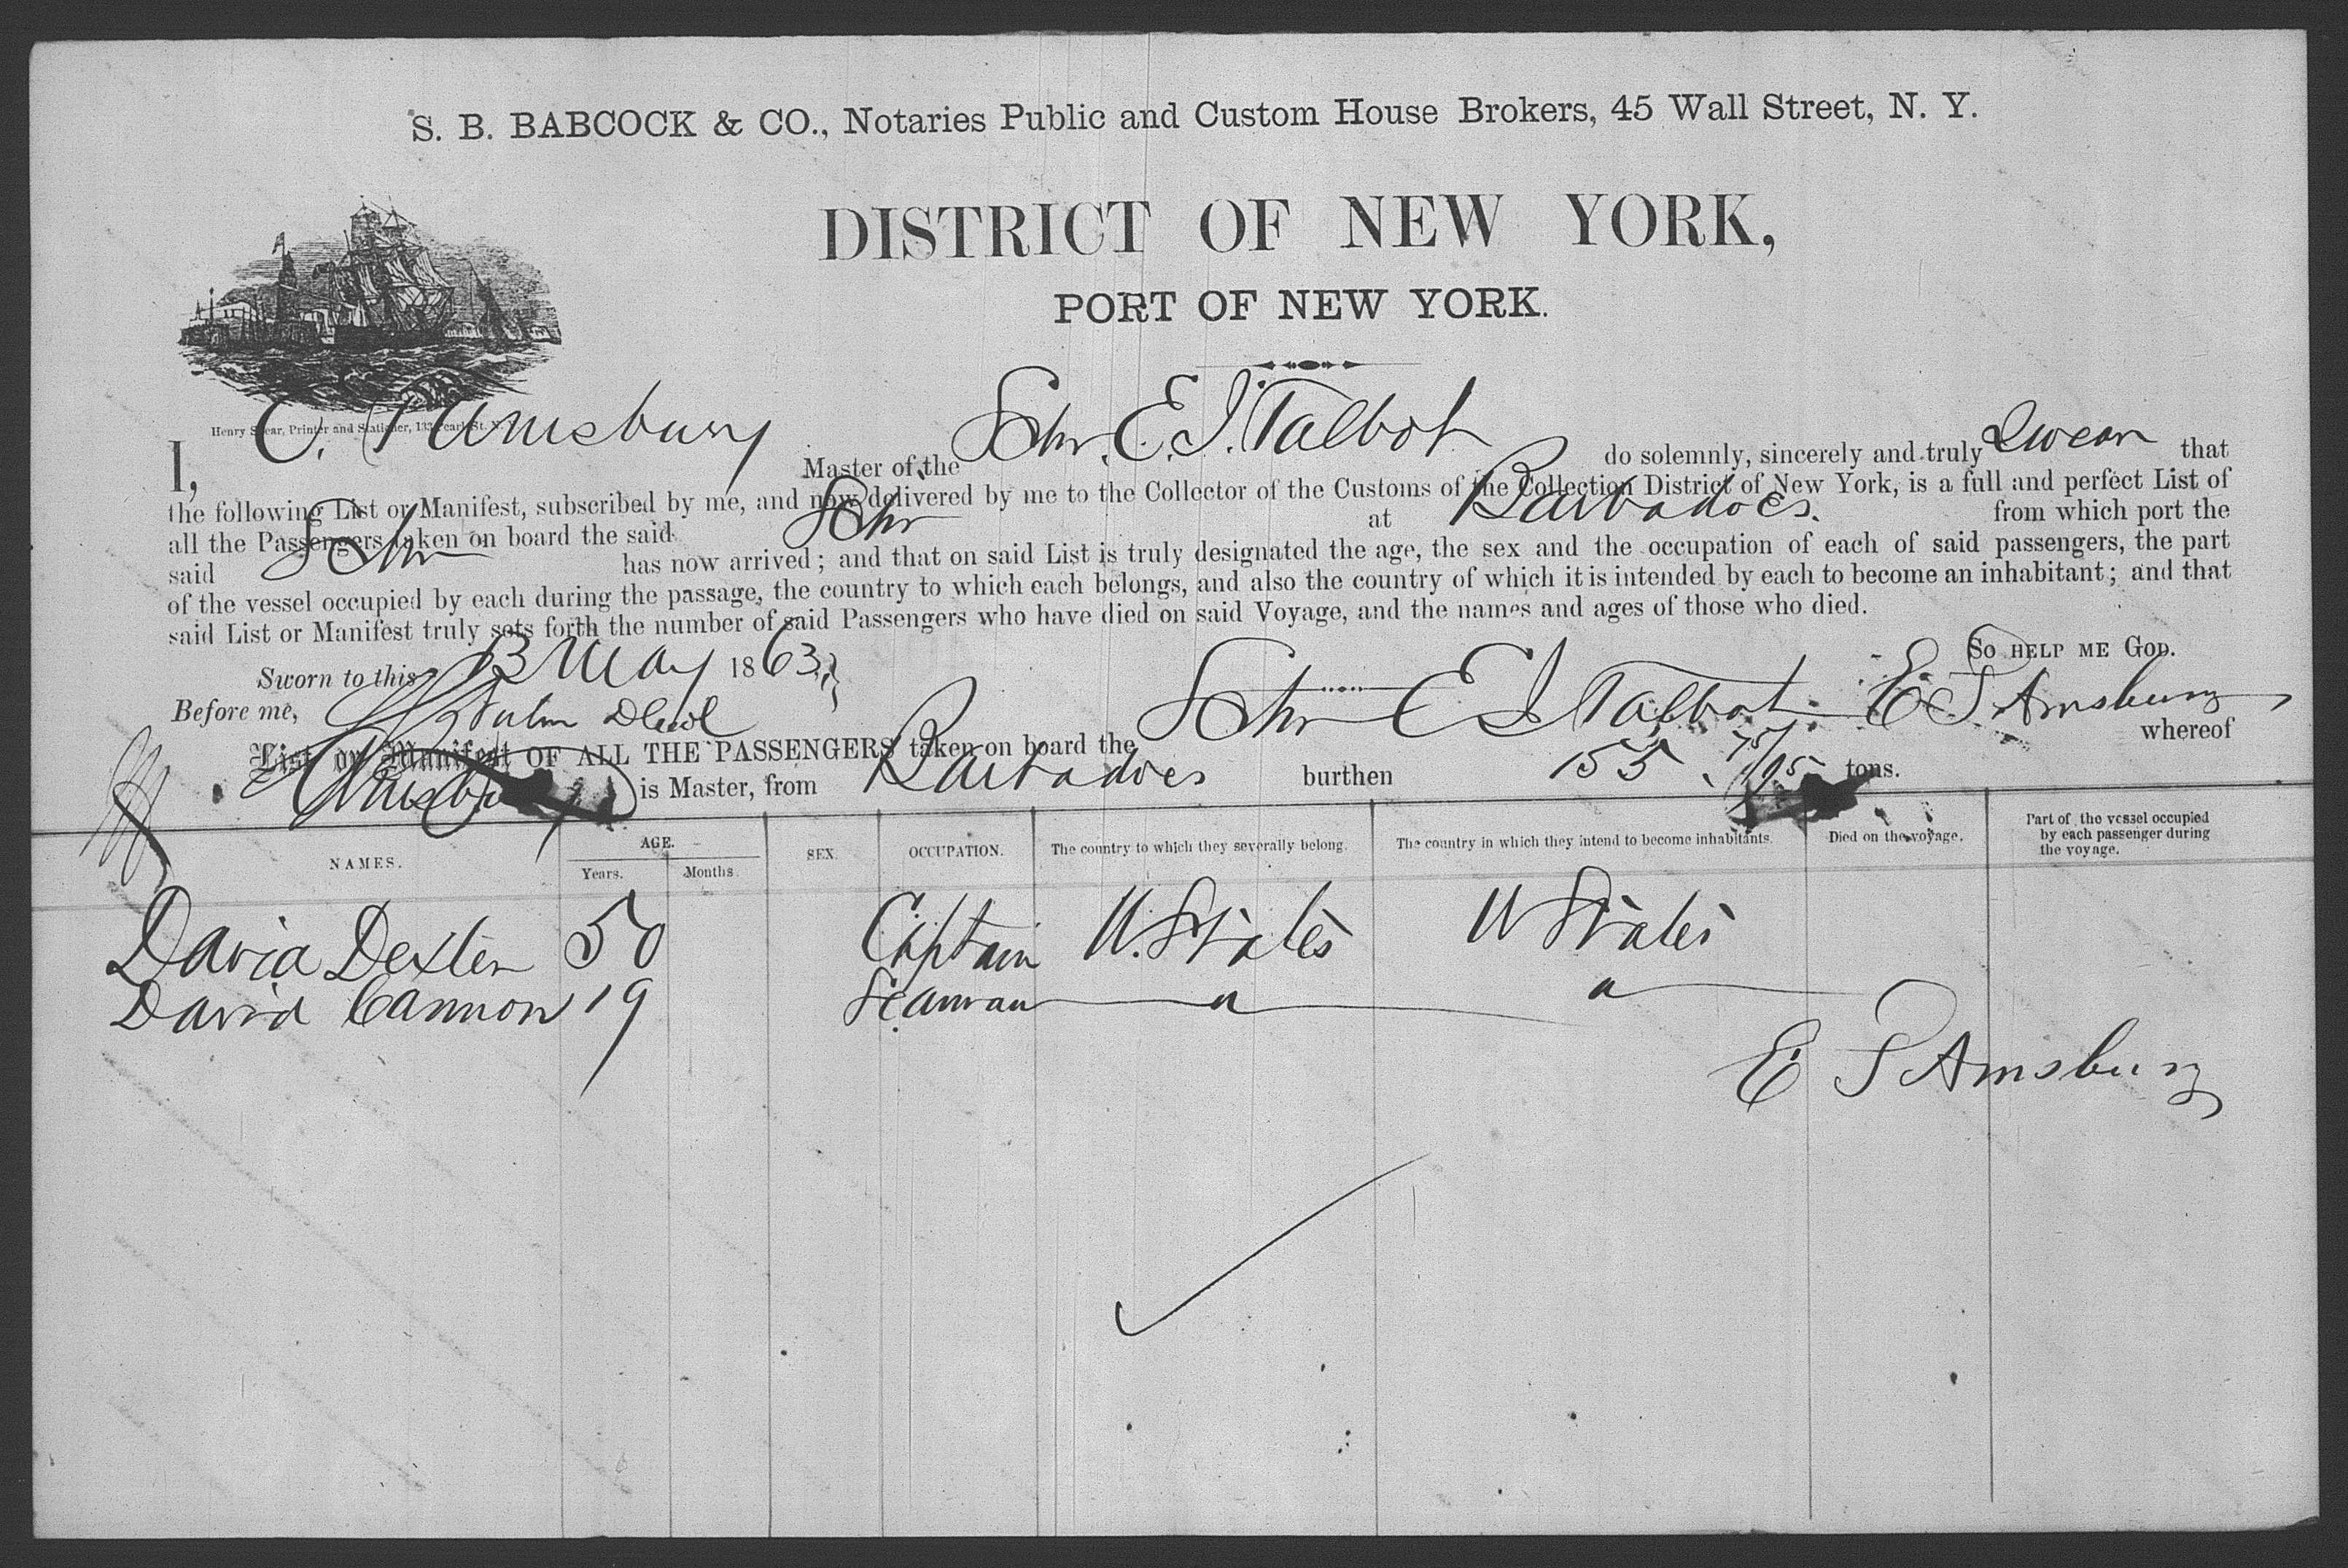 S. B. BABCOCK & CO., Notaries Public and Custom House Brokers, 45 Wall Street, N. Y.
DISTRICT OF NEW YORK,
PORT OF NEW YORK.
Henry Spear, Printer and Stationer, 133 Pearl St. N.
I, Amsbury Master of the Schr. E. I. Talbot do solemnly, sincerely and truly Swear that
the following List or Manifest, subscribed by me, and now delivered by me to the Collector of the Customs of the Collection District of New York, is a full and perfect List of
all the Passengers taken on board the said Schr at Barbadoes. from which port the
said Schr has now arrived; and that on said List is truly designated the age, the sex and the occupation of each of said passengers, the part
of the vessel occupied by each during the passage, the country to which each belongs, and also the country of which it is intended by each to become an inhabitant; and that
said List or Manifest truly sets forth the number of said Passengers who have died on said Voyage, and the names and ages of those who died.
SO HELP ME GOD.
Sworn to this 13 May 1863
Before me,
E S Amsbury
List or Manifest OF ALL THE PASSENGERS taken on board the Schr E I Talbot whereof
Amsbury is Master, from Barbadoes burthen 155 75/95 tons.
NAMES. AGE. Years. Months. SEX. OCCUPATION. The country to which they severally belong. The country in which they intend to become inhabitants. Died on the voyage. Part of the vessel occupied by each passenger during the voyage.
David Dexter 50 Captain U. States U States
David Cannon 19 Seaman " "
E S Amsbury